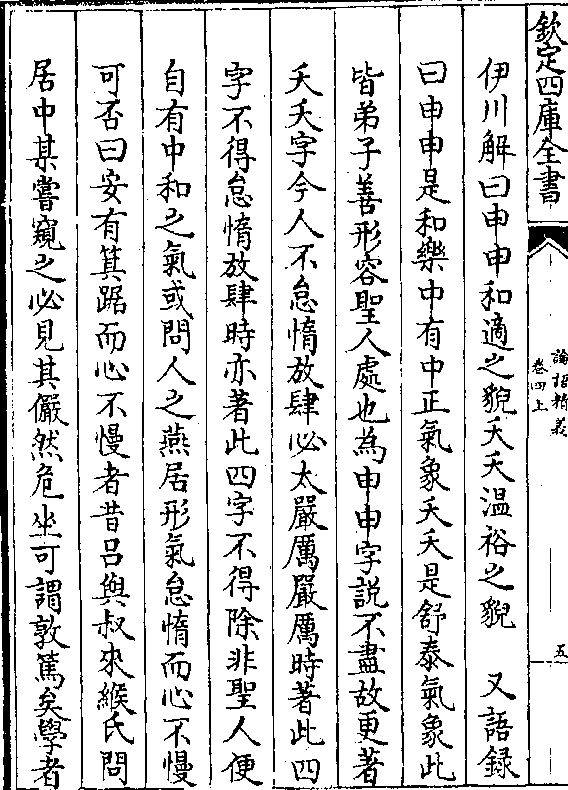 欽定四庫全書
論語精義
卷四上
五
伊川解曰申申和適之貌夭夭溫裕之貌　又語録
曰申申是和樂中有中正氣象夭夭是舒泰氣象此
皆弟子善形容聖人處也為申申字說不盡故更著
夭夭字今人不怠惰放肆必太嚴厲嚴厲時著此四
字不得怠惰放肆時亦著此四字不得除非聖人便
自有中和之氣或問人之燕居形氣怠惰而心不慢
可否曰安有箕踞而心不慢者昔呂與叔來緱氏問
居中某嘗窺之必見其儼然危坐可謂敦篤矣學者